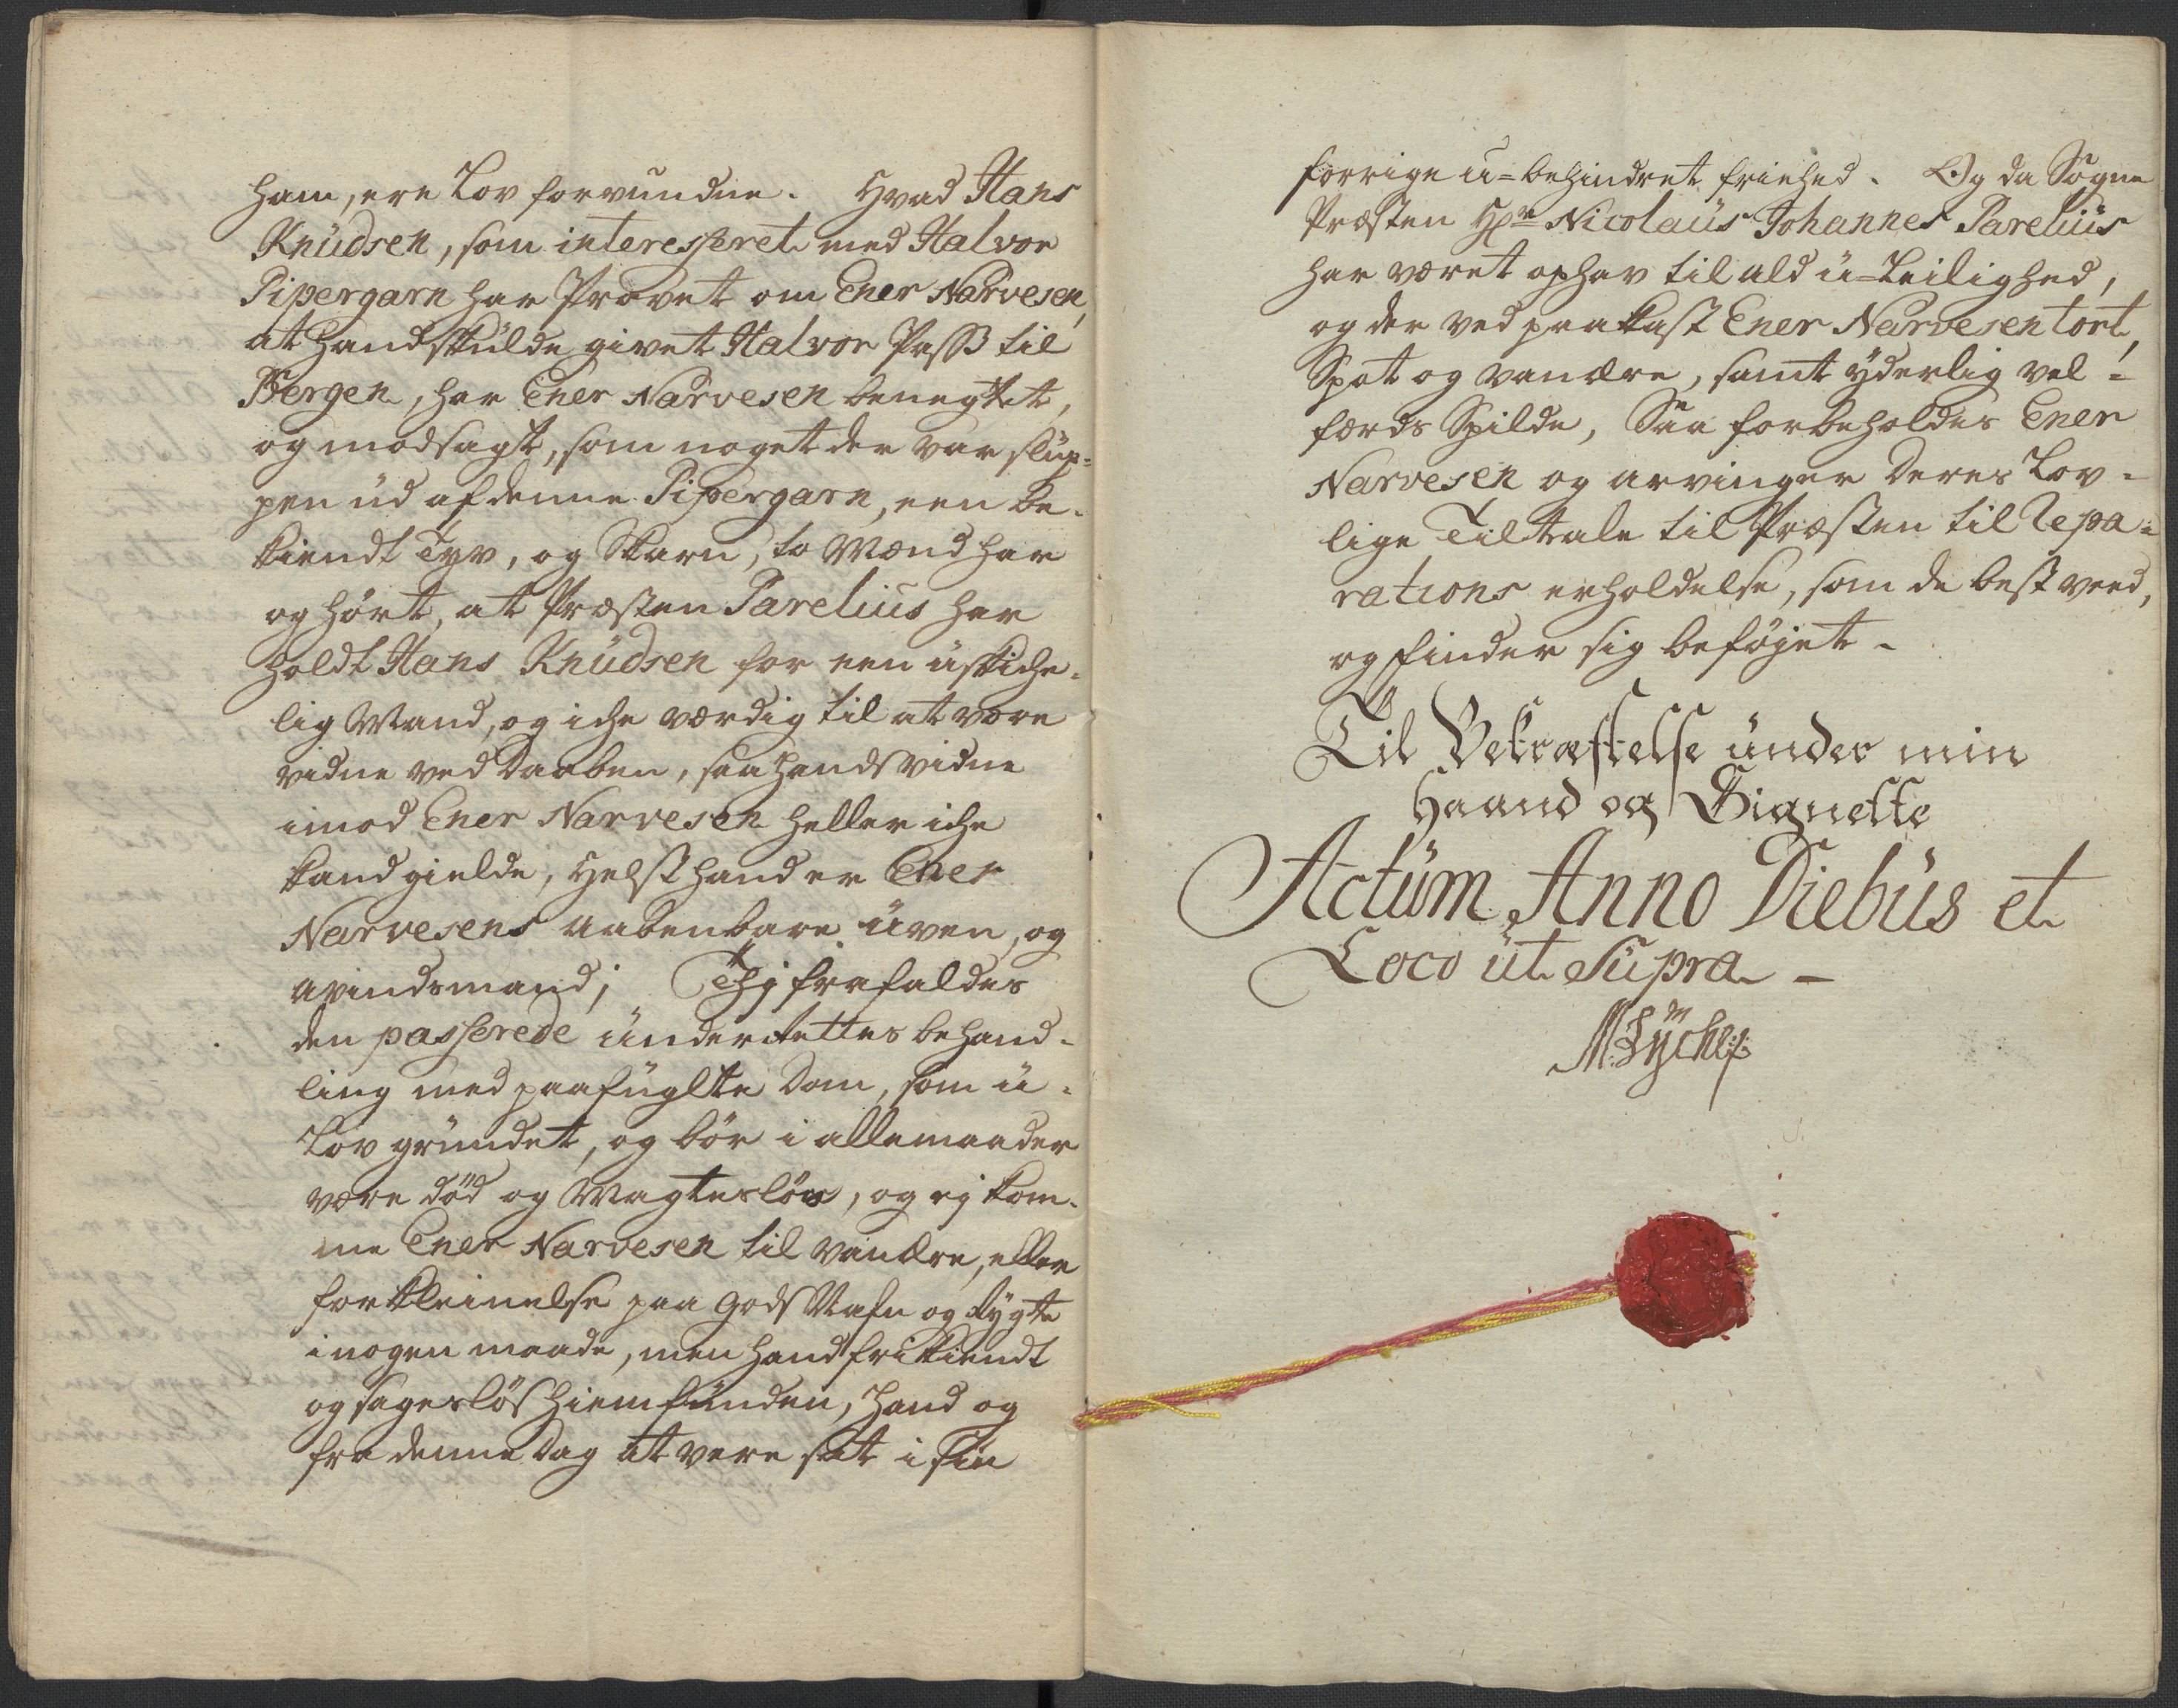 ham, ere Lov forvundne. Hvad Hans
Knüdsen, som interesseret med Halvor
Pipergarn har Provet om Ener Narvesen,
at handskülde givet Halvor Pass til
Bergen, har Ener Narvesen benegtet,
og modsagt, som noget der var slup-
pen üd af denne Pipergarn, een be-
kiendt Tyv, og Skarn, to Mænd har
og hört, at Præsten Parelius har
holdt Hans Knüdsen for een uskiche-
lig Mand, og iche værdig til at være
vidne ved Daaben, saa hands vidne
imod Ener Narvesen heller iche
kand gielde, helst hand er Ener
Narvesens aabenbare üven, og
avindsmand; Thj frafaldes
den passerede ünderRettes behand-
ling med paafüglte Dom, som ü-
Lov gründet, og bör i allemaader
være död og Magteslös, og ej kom-
me Ener Narvesen til vanære, eller
forkleinelse paa gods Nafn og Rygte
i nogen maade, men hand frikiendt
og sageslös hiemfunden, hand og
fra denne Dag at være sat i sin
forrige ü-behindret friehed. Og da Sogne
Præsten Hr Nicolaüs Johannes Pareliüs
har været ophav til ald ü-Leilighed,
og der ved paakast Ener Narvesen tort,
Spot og vanære, samt ÿderlig vel-
færds Spilde, Saa forbeholdes Ener
Narvesen og arvinger deres Lov-
lige Tiltale til Præsten til Repa-
rations erholdelse, som de best veed,
og finder sig beföjet -
Til Bekræftelse ünder min
Haand og Signette
Actüm Anno Diebüs et
Loco üt Süpra -